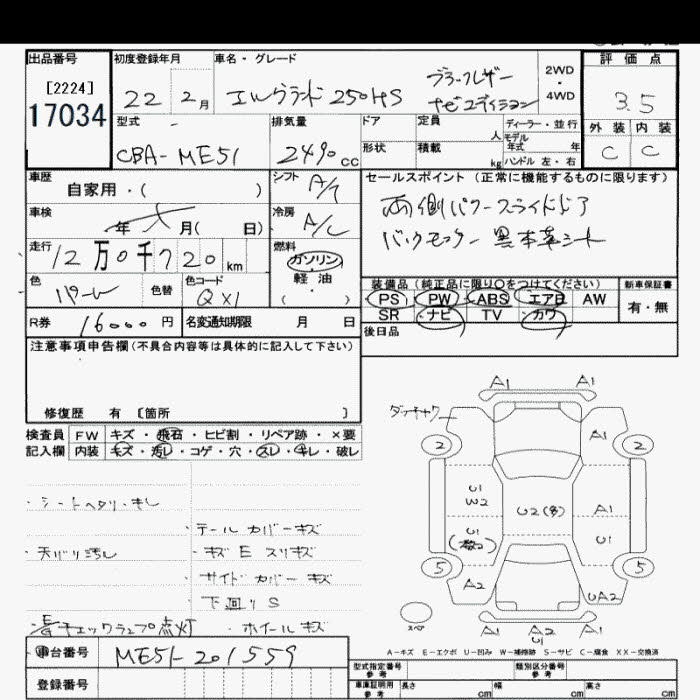 出品番号 初度登録年月 車名・グレード 評価点
[2224]
17034
22 2月 エルグランド 250HS ブラックレザー ナビエディション
2WD・4WD
3.5
型式 排気量 ドア 定員 人 ディーラー・並行 外装 内装
CBA-ME51 2490cc 形状 積載 kg モデル年式 年 ハンドル 左・右 C C
車歴 シフト セールスポイント(正常に機能するものに限ります)
自家用・( ) A/T
両側パワースライドドア
車検 年 月(日) 冷房 A/C
バックモニター 黒本革シート
走行 12万0千720km 燃料 ガソリン
軽油
( )
色 パール 色替 色コード QX1
装備品(純正品に限り○をつけてください) 新車保証書
PS PW ABS エアB AW 有・無
SR ナビ TV カワ
R券 16000円 名変通知期限 月 日
後日品
注意事項申告欄(不具合内容等は具体的に記入して下さい)
修復歴 有 〔箇所 〕
検査員記入欄 FW キズ・飛石・ヒビ割・リペア跡・×要
内装 キズ・汚レ・コゲ・穴・スレ・キレ・破レ
・シートヘタリ・キレ
・テールカバーキズ
・天バリ汚レ ・キズ E スリキズ
・サイドカバーキズ
・下廻りS
チェックランプ点灯 ・ホイールキズ
A1 A1
A1
2 2
U1 W2 U2(多) A1
U1 U1
5 5
A2 UA2
スペア A1 A2 A1
U1
A-キズ E-エクボ U-凹み W-補修跡 S-サビ C-腐食 XX-交換済
車台番号 ME51-201559
登録番号
型式指定番号 参考 類別区分番号 参考
車庫証明用 参考 長さ cm 幅 cm 高さ cm